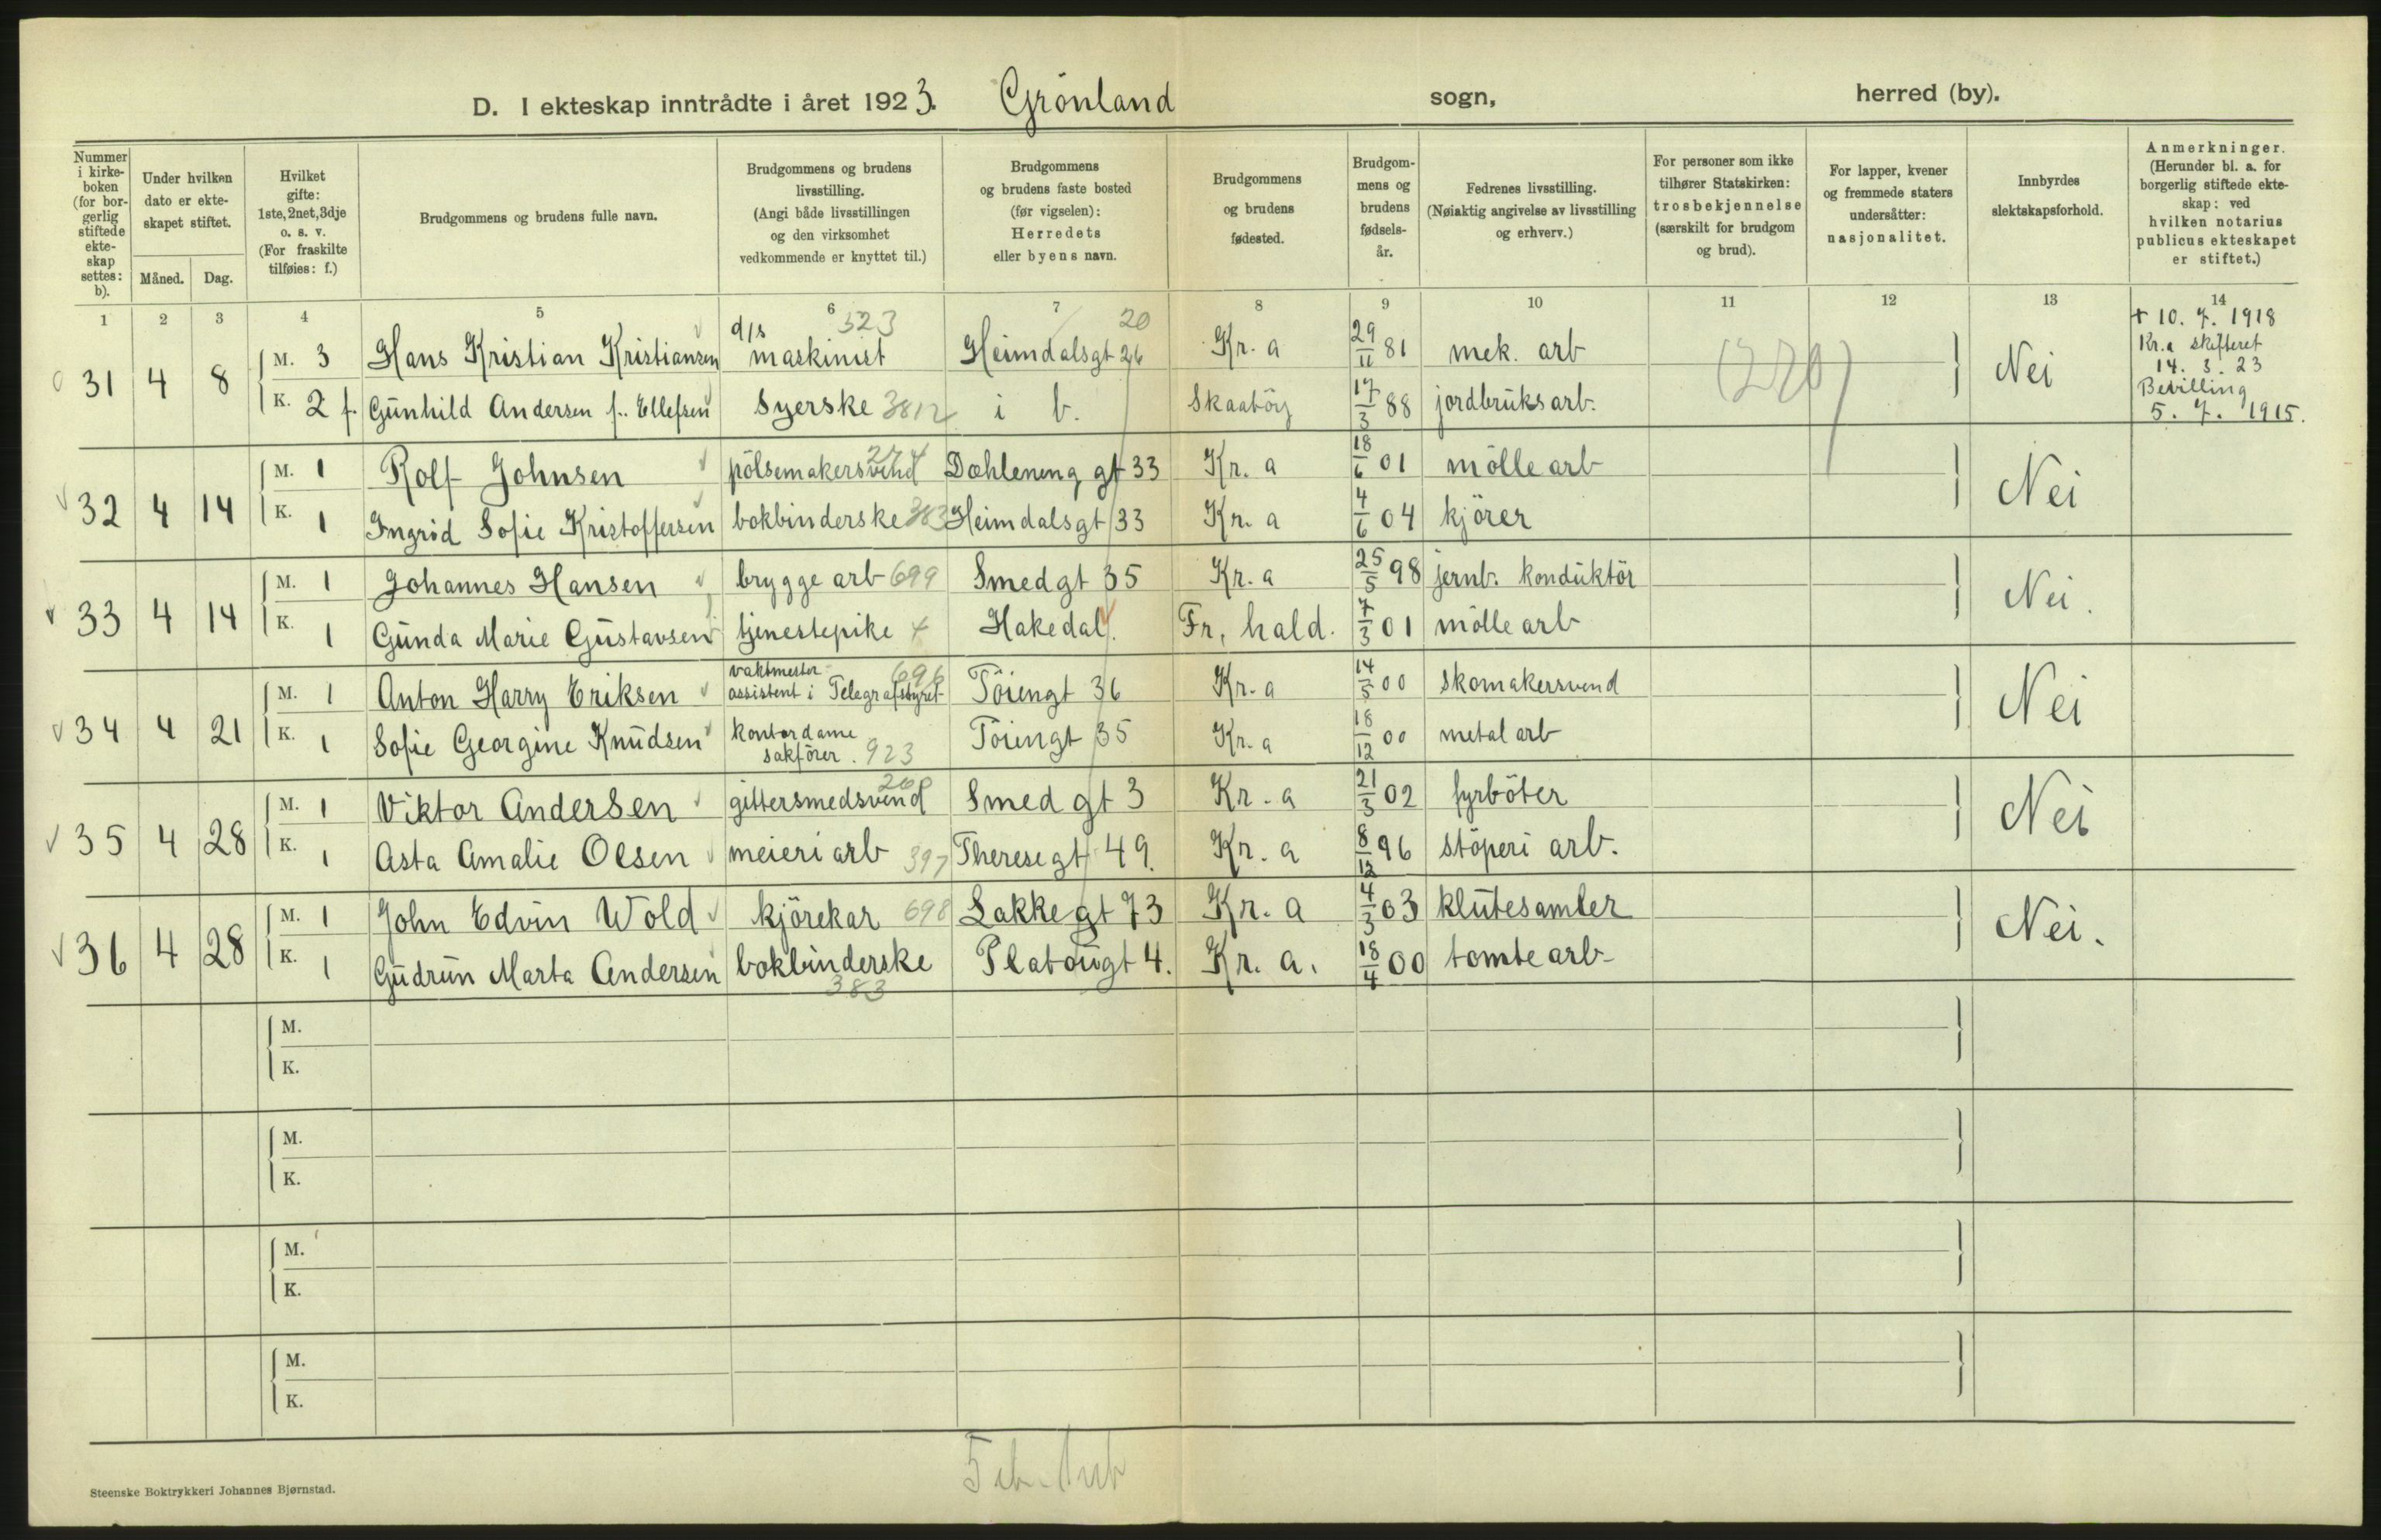 D. I ekteskap inntrådte i året 1923. Grönland sogn, herred (by).
Nummer i kirkeboken (for borgerlig stiftede ekteskap settes: b).
Under hvilken dato er ekteskapet stiftet.
Måned. Dag.
Hvilket gifte: 1ste, 2net, 3dje o. s. v. (For fraskilte tilføies: f.)
Brudgommens og brudens fulle navn.
Brudgommens og brudens livsstilling. (Angi både livsstillingen og den virksomhet vedkommende er knyttet til.)
Brudgommens og brudens faste bosted (før vigselen): Herredets eller byens navn.
Brudgommens og brudens fødested.
Brudgommens og brudens fødselsår.
Fedrenes livsstilling. (Nøiaktig angivelse av livsstilling og erhverv.)
For personer som ikke tilhører Statskirken: trosbekjennelse (særskilt for brudgom og brud).
For lapper, kvener og fremmede staters undersåtter: nasjonalitet.
Innbyrdes slektskapsforhold.
Anmerkninger. (Herunder bl. a. for borgerlig stiftede ekteskap: ved hvilken notarius publicus ekteskapet er stiftet.)
1 2 3 4 5 6 7 8 9 10 11 12 13 14
31 4 8 M. 3 Hans Kristian Kristiansen d/s maskinist 323 Heimdalsgt 26 20 Kr. a 29/11 81 mek. arb (220) Nei + 10. 7. 1918 Kr.a skifteret 14. 3. 23
K. 2 f. Gunhild Andersen f. Ellefsen Syerske 3812 i b. Skaaböy 17/3 88 jordbruksarb. Bevilling 5. 7. 1915.
32 4 14 M. 1 Rolf Johnsen pölsemakersvend 274 Dæhleneng gt 33 Kr. a 18/6 01 mölle arb Nei
K. 1 Ingrid Sofie Kristoffersen bokbinderske 383 Heimdalsgt 33 Kr. a 4/6 04 kjörer
33 4 14 M. 1 Johannes Hansen brygge arb 699 Smedgt 35 Kr. a 25/5 98 jernb. konduktör Nei.
K. 1 Gunda Marie Gustavsen tjenestepike 4 Hakedal. Fr. hald. 7/3 01 mölle arb
34 4 21 M. 1 Anton Harry Eriksen vaktmester assistent i Telegrafstyret 696 Töiengt 36 Kr. a 14/5 00 skomakersvend Nei
K. 1 Sofie Georgine Knudsen kontordame sakförer. 923 Töiengt 35 Kr. a 18/12 00 metal arb
35 4 28 M. 1 Viktor Andersen gittersmedsvend 260 Smed gt 3 Kr. a 21/3 02 fyrböter Nei
K. 1 Asta Amalie Olsen meieri arb 397 Theresegt 49. Kr. a 8/12 96 stöperi arb.
36 4 28 M. 1 John Edvin Wold kjörekar 698 Lakkegt 73 Kr. a 4/3 03 klutesamler Nei.
K. 1 Gudrun Marta Andersen bokbinderske 383 Platougt 4. Kr. a. 18/4 00 tomte arb
M.
K.
M.
K.
M.
K.
M.
K.
Steenske Boktrykkeri Johannes Bjørnstad.